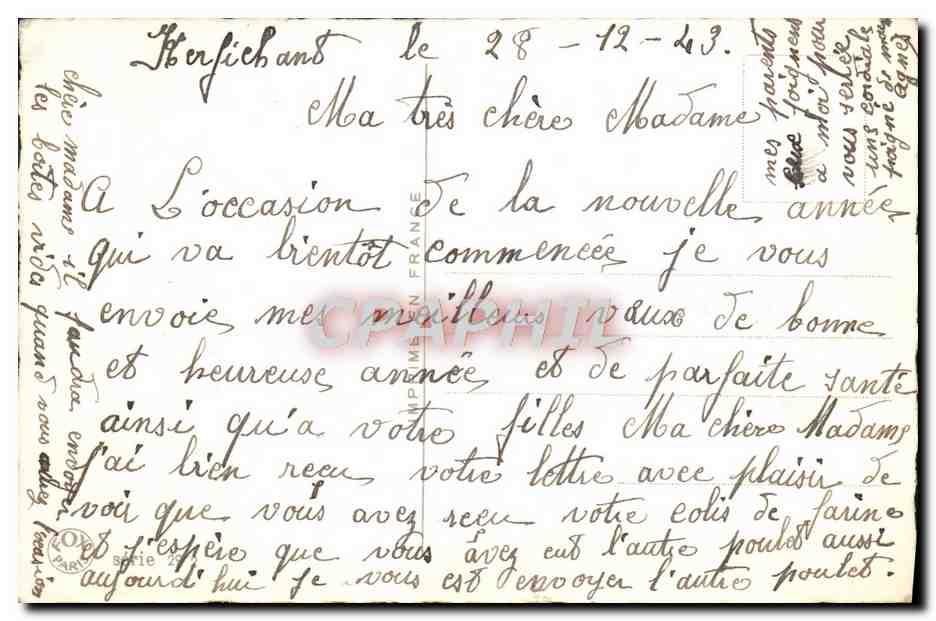 Kerfichant le 28-12-43.
Ma très chère Madame
A L'occasion de la nouvelle année
qui va bientôt commencée je vous
envoie mes meilleurs vœux de bonne
et heureuse année et de parfaite santé
ainsi qu'a votre filles Ma chère Madame
j'ai bien reçu votre lettre avec plaisir de
voir que vous avez reçu votre colis de farine
et j'espère que vous avez eut l'autre poulet aussi
aujourd'hui je vous est envoyer l'autre poulet.
chère madame sil faudra envoyer
les boîtes vides quand vous aurez l'ocasion
mes parents
joignens
a moi pour
vous serrée
une cordiale
poigné de main
agnès
IMPRIMÉ EN FRANCE
PARIS
série 29
CPAPHIL